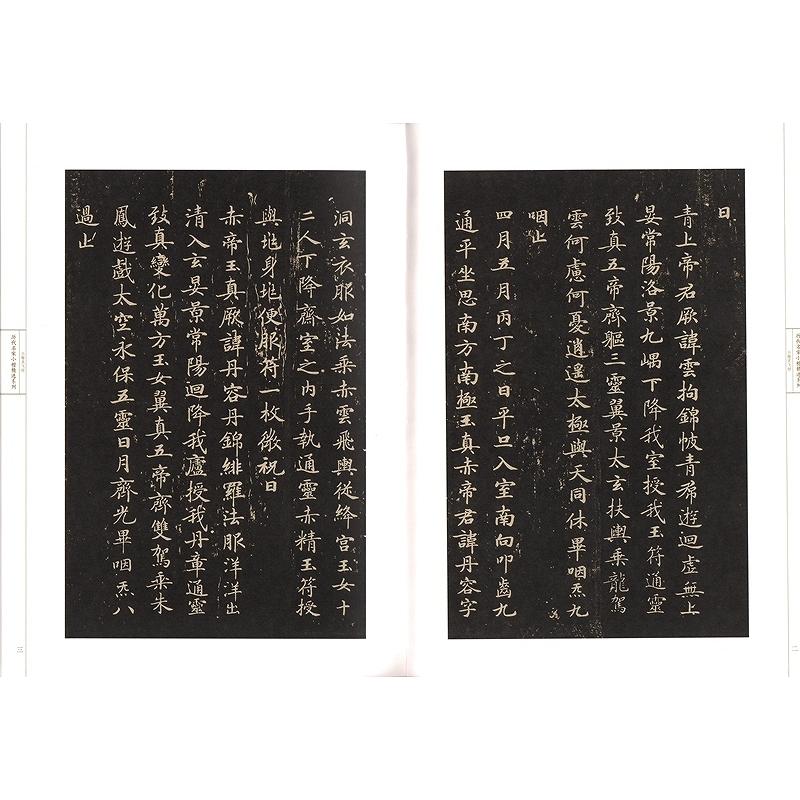 曰
青上帝君厥諱雲拘錦帔青帬遊迴虛無上
晏常陽洛景九嵎下降我室授我玉符通靈
致真五帝齊軀三靈翼景太玄扶輿乘龍駕
雲何慮何憂逍遙太極與天同休畢咽炁九
咽止
四月五月丙丁之日平旦入室南向叩齒九
通平坐思南方南極玉真赤帝君諱丹容字
二
洞玄衣服如法乘赤雲飛輿從絳宮玉女十
二人下降齋室之内手執通靈赤精玉符授
與地身地便服符一枚微祝曰
赤帝玉真厥諱丹容丹錦緋羅法服洋洋出
清入玄晏景常陽迴降我廬授我丹章通靈
致真變化萬方玉女翼真五帝齊雙駕乘朱
鳳遊戲太空永保五靈日月齊光畢咽炁八
過止
历代名家小楷精选系列
三